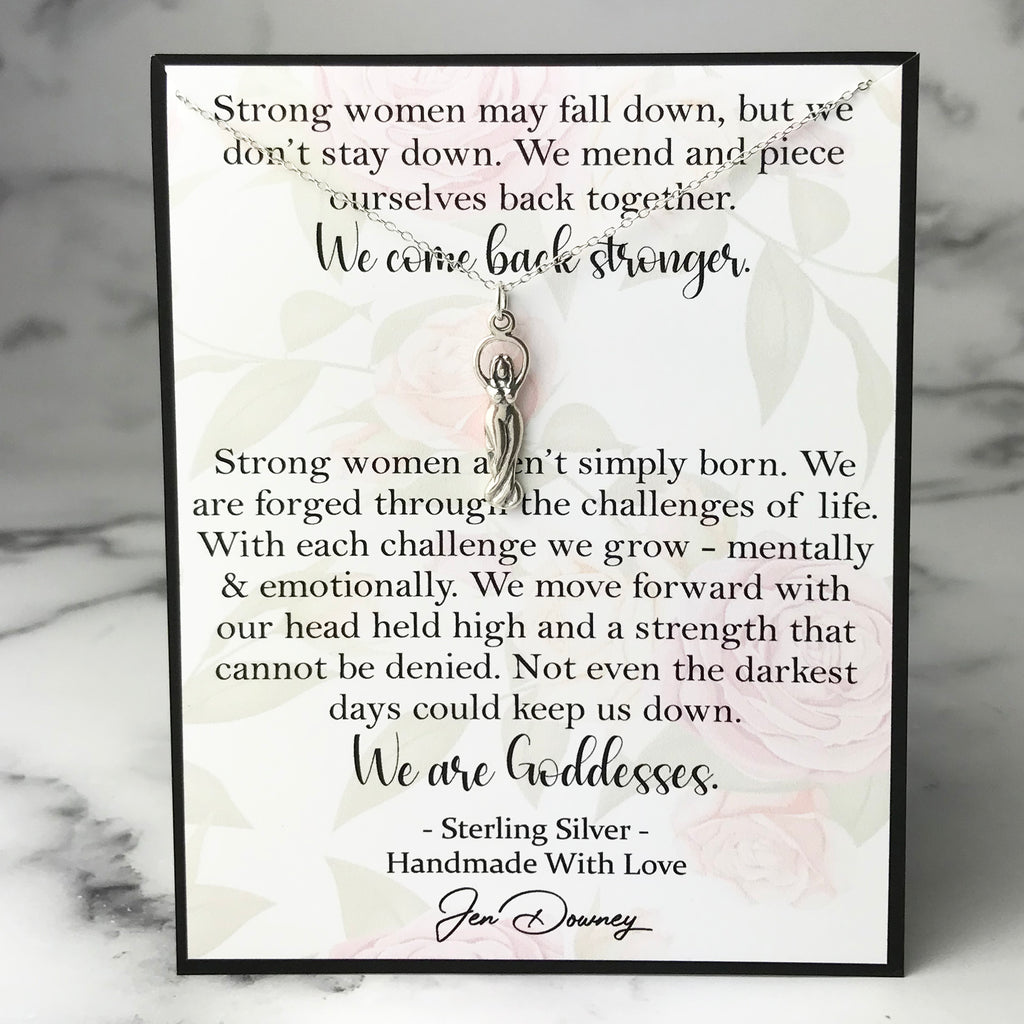 Strong women may fall down, but we
don't stay down. We mend and piece
ourselves back together.
We come back stronger.
Strong women aren't simply born. We
are forged through the challenges of life.
With each challenge we grow - mentally
& emotionally. We move forward with
our head held high and a strength that
cannot be denied. Not even the darkest
days could keep us down.
We are Goddesses.
- Sterling Silver -
Handmade With Love
Jen Downey